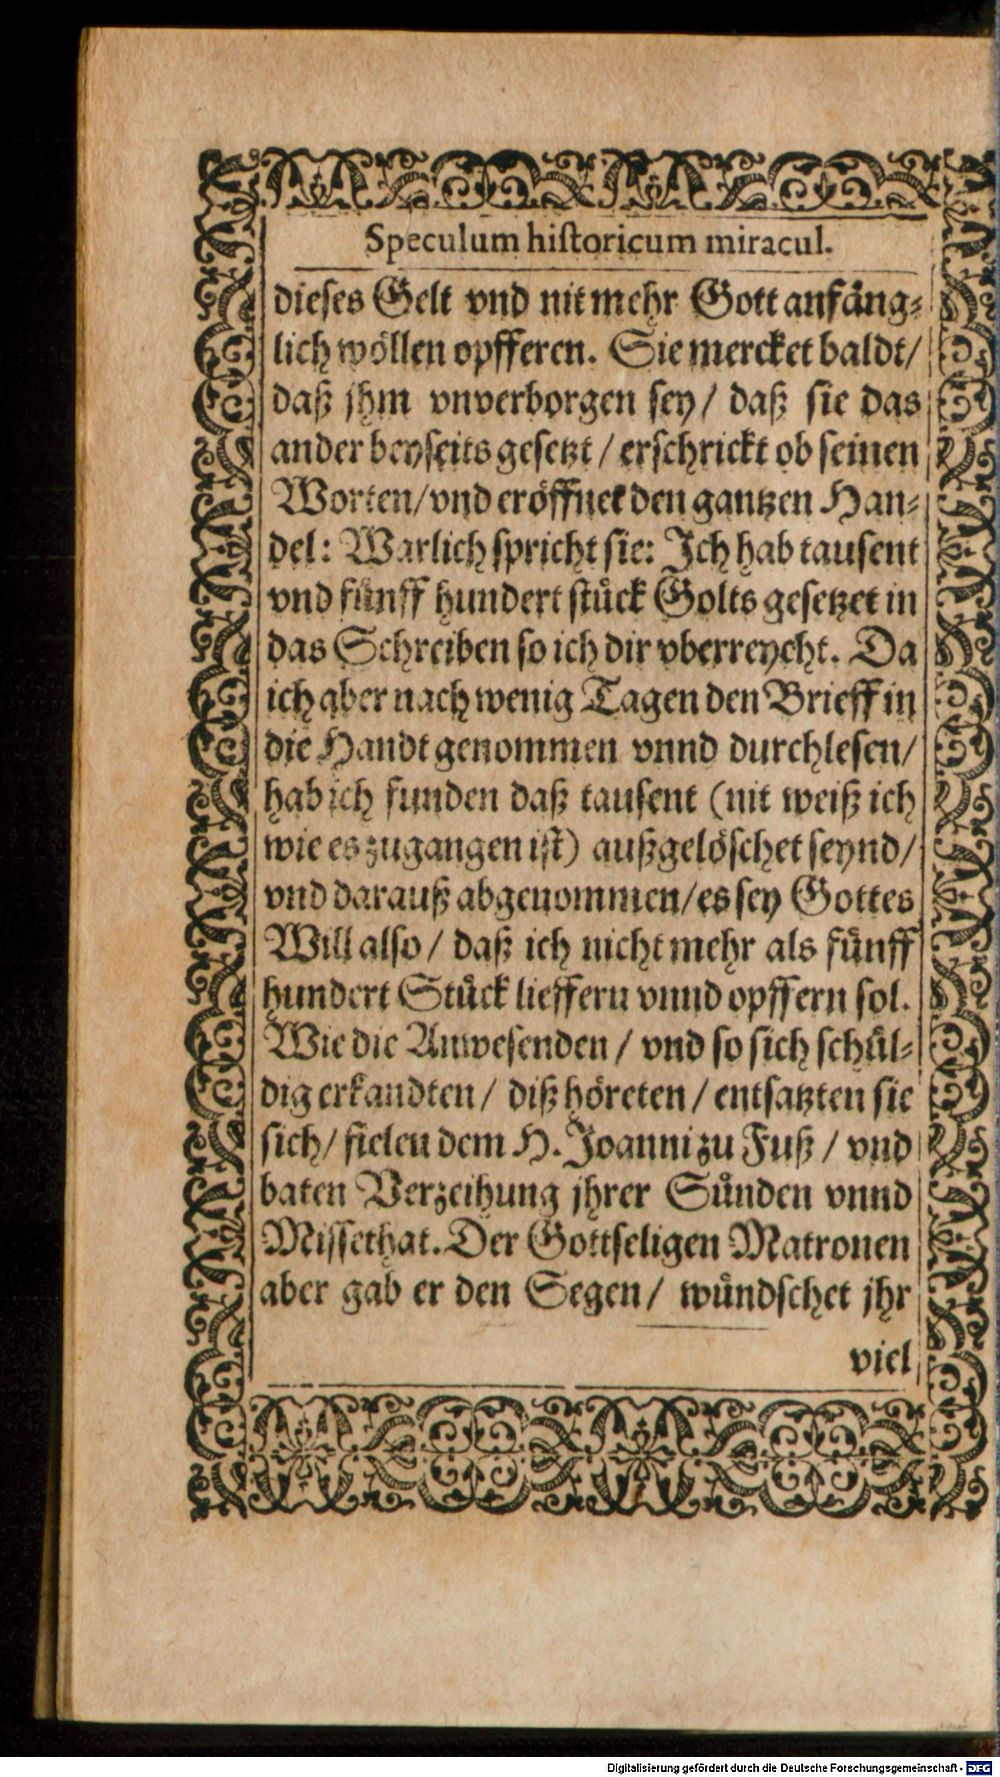 Speculum historicum miracul.
dieses Gelt vnd nit mehr Gott anfäng⸗
lich wöllen opfferen. Sie mercket baldt/
daß jhm vnverborgen sey/ daß sie das
ander beyseits gesetzt/ erschrickt ob seinen
Worten/vnd eröffnet den gantzen Han⸗
del: Warlich spricht sie: Ich hab tausent
vnd fünff hundert stück Golts gesetzet in
das Schreiben so ich dir vberreycht. Da
ich aber nach wenig Tagen den Brieff in
die Handt genommen vnnd durchlesen/
hab ich funden daß tausent (nit weiß ich
wie es zugangen ist) außgelöschet seynd/
vnd darauß abgenommen/es sey Gottes
Will also/ daß ich nicht mehr als fünff
hundert Stück lieffern vnnd opffern sol.
Wie die Anwesenden/ vnd so sich schül⸗
dig erkandten/ diß höreten/ entsatzten sie
sich/ fielen dem H. Joanni zu Fuß/ vnd
baten Verzeihung jhrer Sünden vnnd
Missethat. Der Gottseligen Matronen
aber gab er den Segen/ wündschet jhr
viel
Digitalisierung gefördert durch die Deutsche Forschungsgemeinschaft - DFG